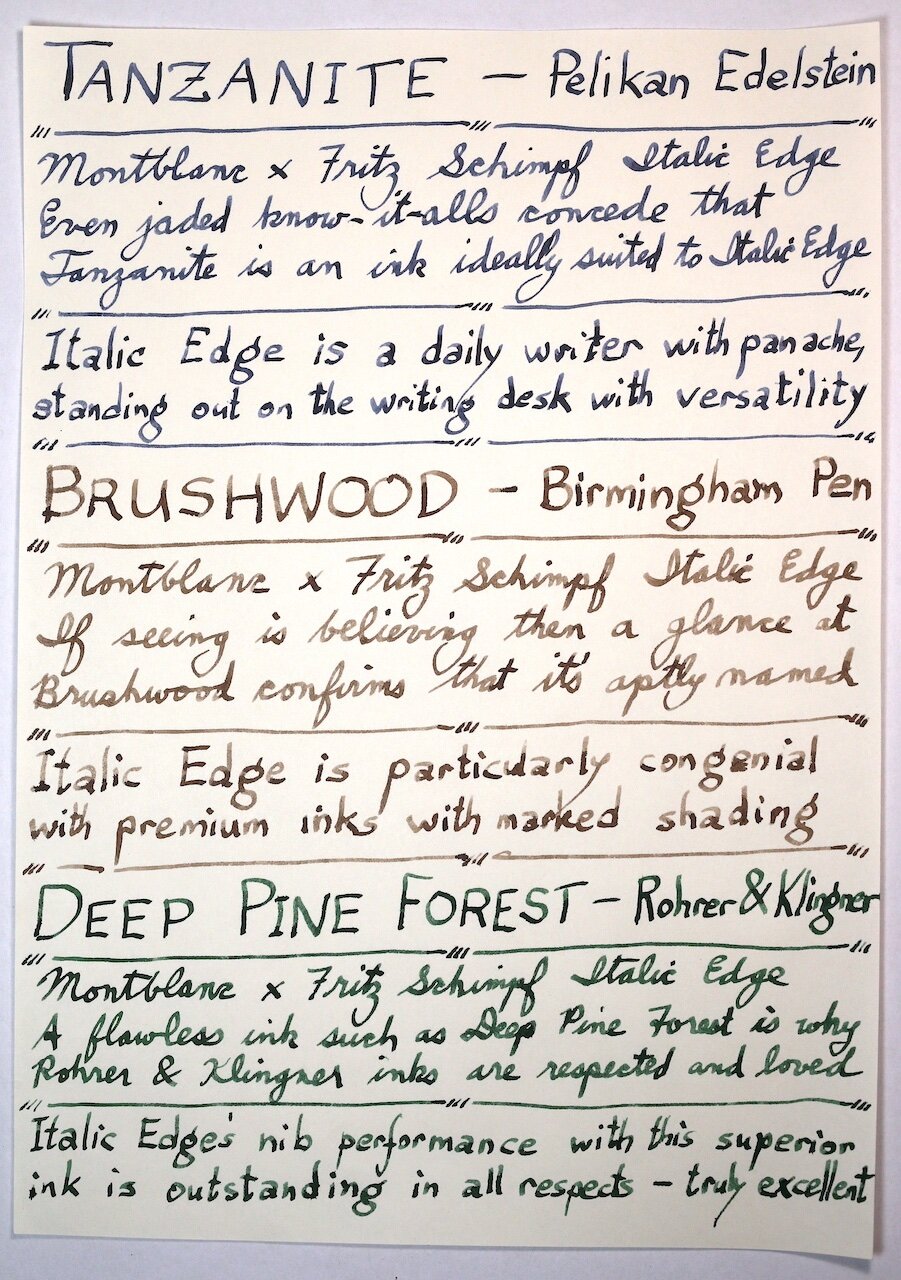 TANZANITE – Pelikan Edelstein
Montblanc x Fritz Schimpf Italic Edge
Even jaded know-it-alls concede that
Tanzanite is an ink ideally suited to Italic Edge
Italic Edge is a daily writer with panache,
standing out on the writing desk with versatility
BRUSHWOOD – Birmingham Pen
Montblanc x Fritz Schimpf Italic Edge
If seeing is believing then a glance at
Brushwood confirms that it's aptly named
Italic Edge is particularly congenial
with premium inks with marked shading
DEEP PINE FOREST – Rohrer & Klingner
Montblanc x Fritz Schimpf Italic Edge
A flawless ink such as Deep Pine Forest is why
Rohrer & Klingner inks are respected and loved
Italic Edge's nib performance with this superior
ink is outstanding in all respects – truly excellent